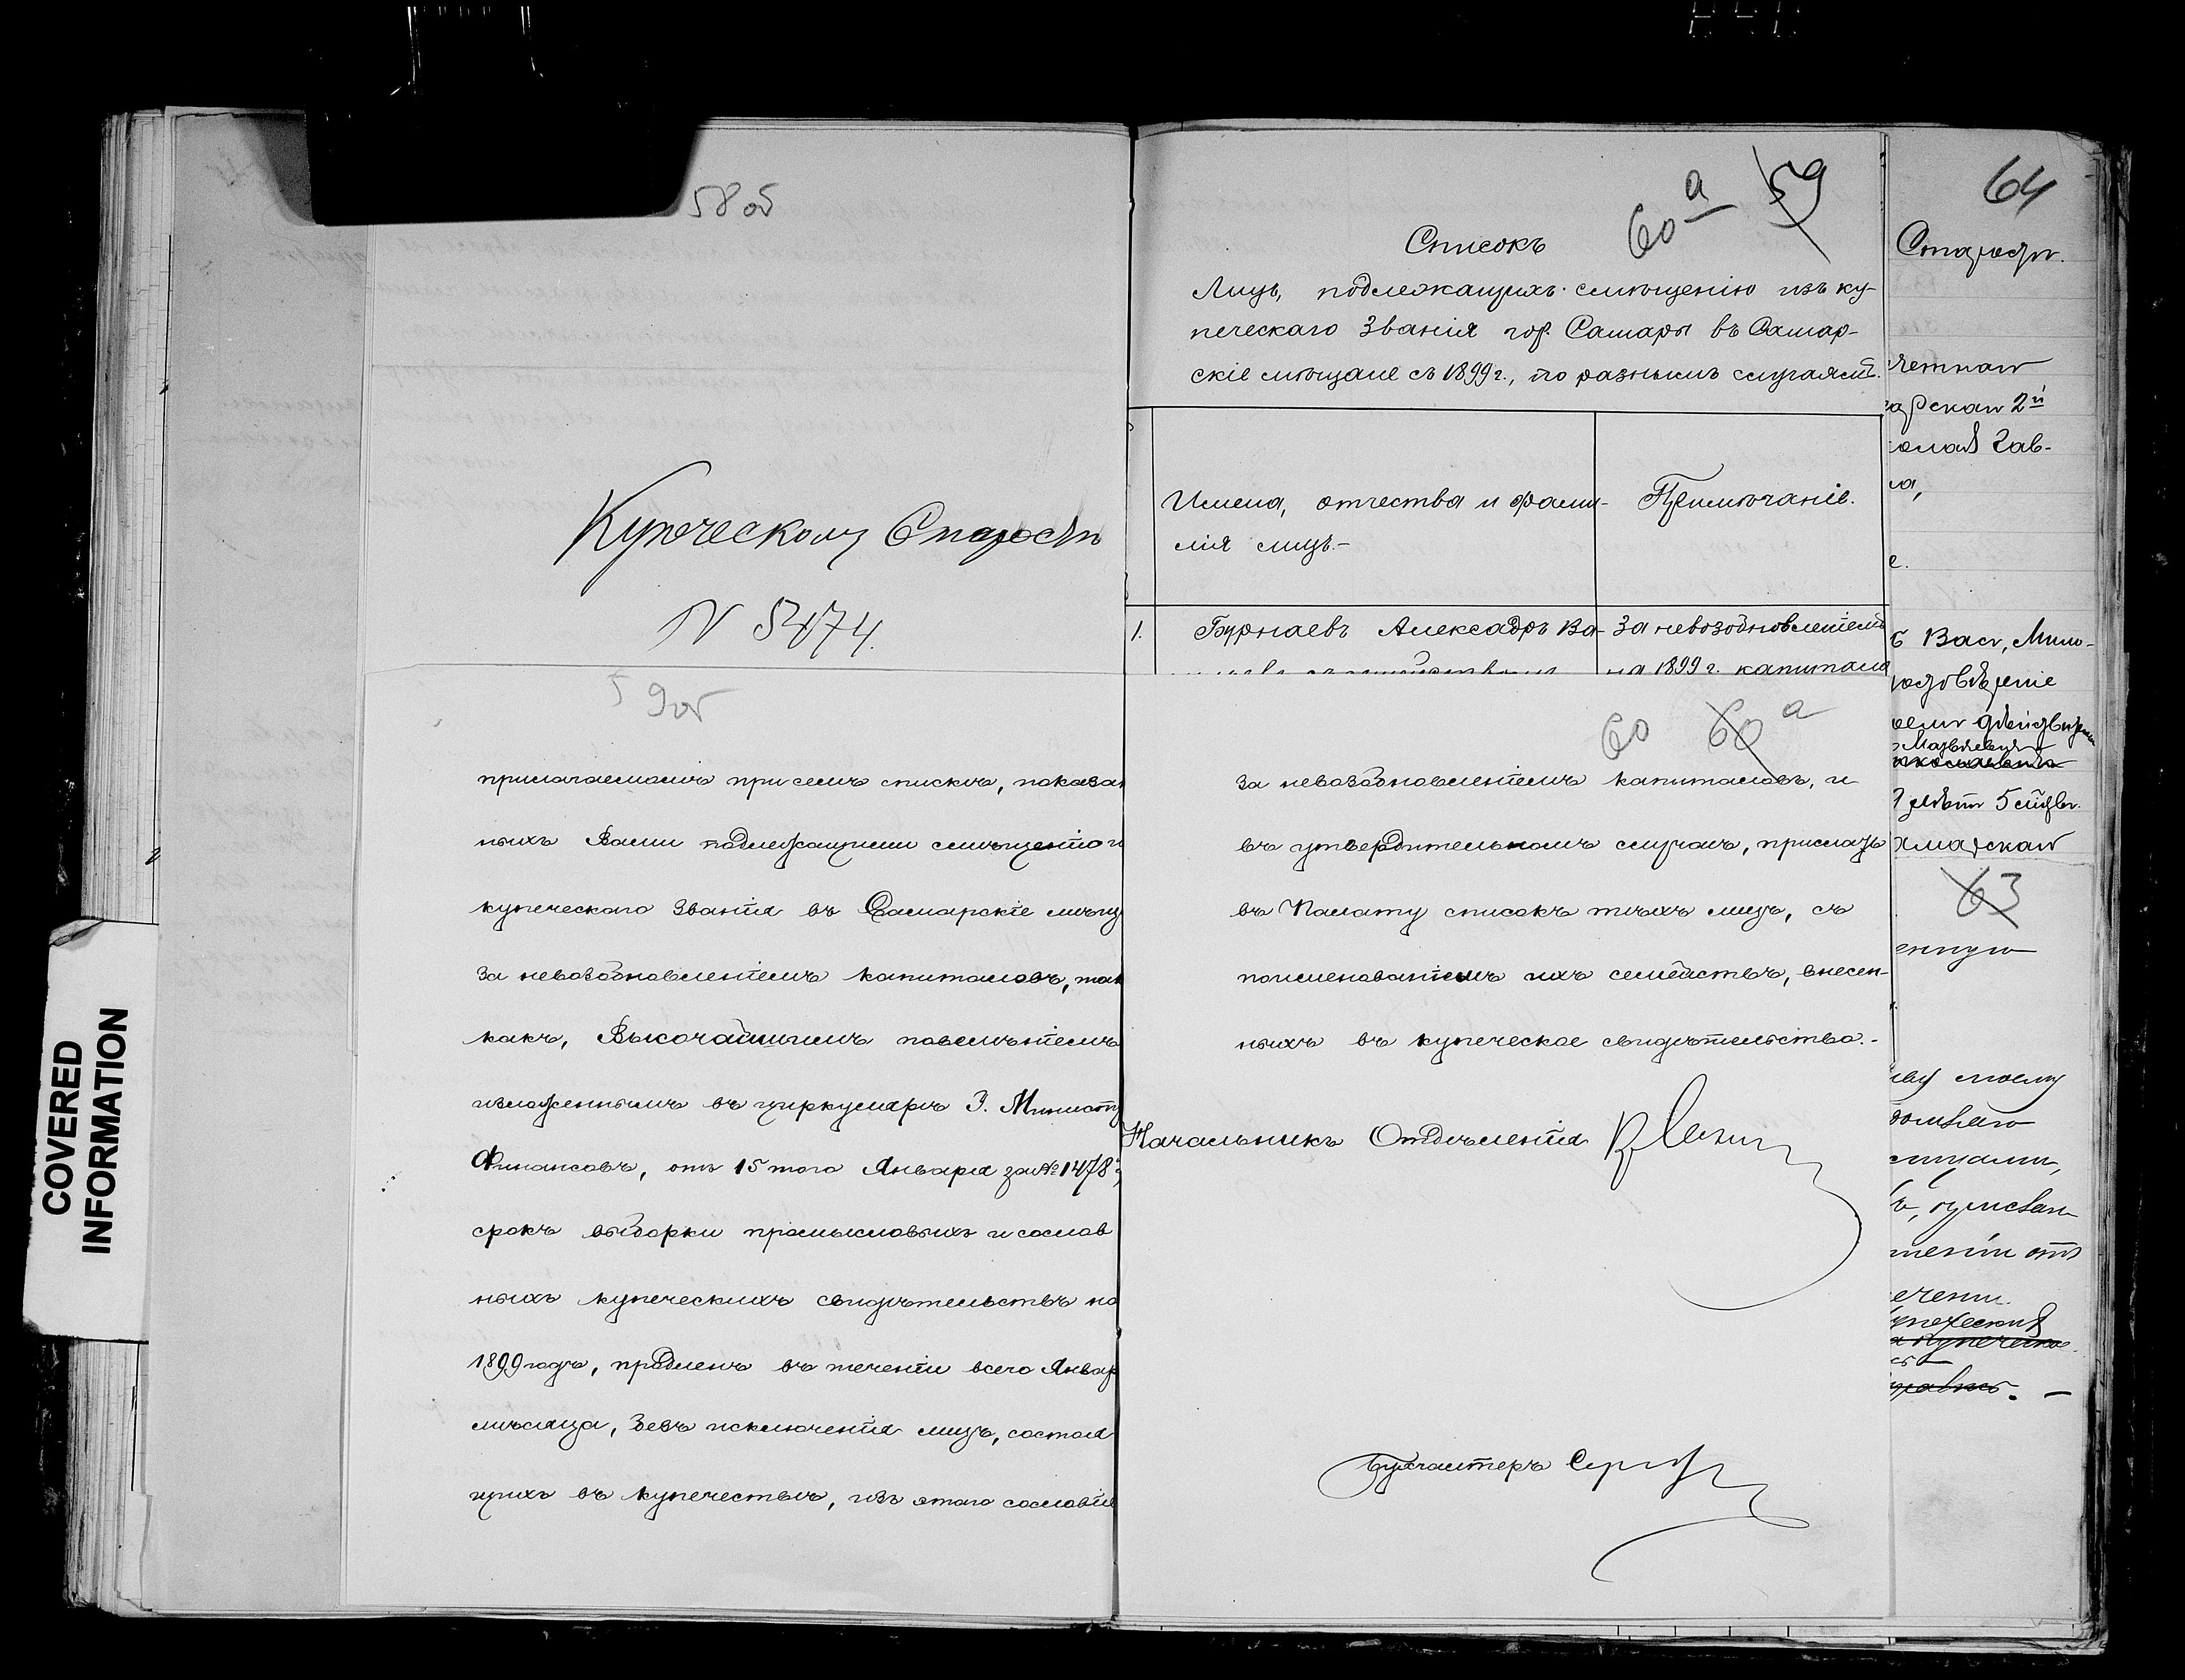 58 об
Купеческому Старостѣ
N 5474.
59 об
прилагаемомъ при семъ спискѣ, показан
ныхъ Вами подлежащими смѣщенію и
купеческаго званія въ Самарскіе мѣщ
за невозобновленіемъ капиталовъ, так
какъ, Высочайшимъ повелѣніемъ
изложеннымъ въ циркулярѣ Г. Минист
Финансовъ, отъ 15 того Января за № 1478,
срокъ выборки промысловыхъ и сослов
ныхъ купеческихъ свидѣтельствъ на
1899 годъ, продленъ въ теченіи всего Январ
мѣсяца, безъ исключенія лицъ, состоя
щихъ въ купечествѣ, изъ этого сословія
60 а 59
Списокъ
Лицъ, подлежащихъ смѣщенію изъ ку-
печескаго званія гор. Самары въ Самар-
скіе мѣщане съ 1899 г., по разнымъ случаямъ.
Имена, отчества и фами-
лія лицъ.-
Примѣчаніе.
1. Бурнаевъ Александръ Ва-
За невозобновленіемъ
на 1899 г. капитала
60 60 а
за невозобновленіемъ капиталовъ, и
въ утвердительномъ случаѣ, прислать
въ Палату списокъ тѣхъ лицъ, съ
поименованіемъ ихъ семействъ, внесен-
ныхъ въ купеческое свидѣтельство.-
Начальникъ Отдѣленія
Бухгалтеръ
64
Старость.
четная
арская 2й
олай Гав-
на,
е.
Вас, Мило-
Матвѣевич
5
марская
63
енную
моему
ечени
купеческія
COVERED
INFORMATION